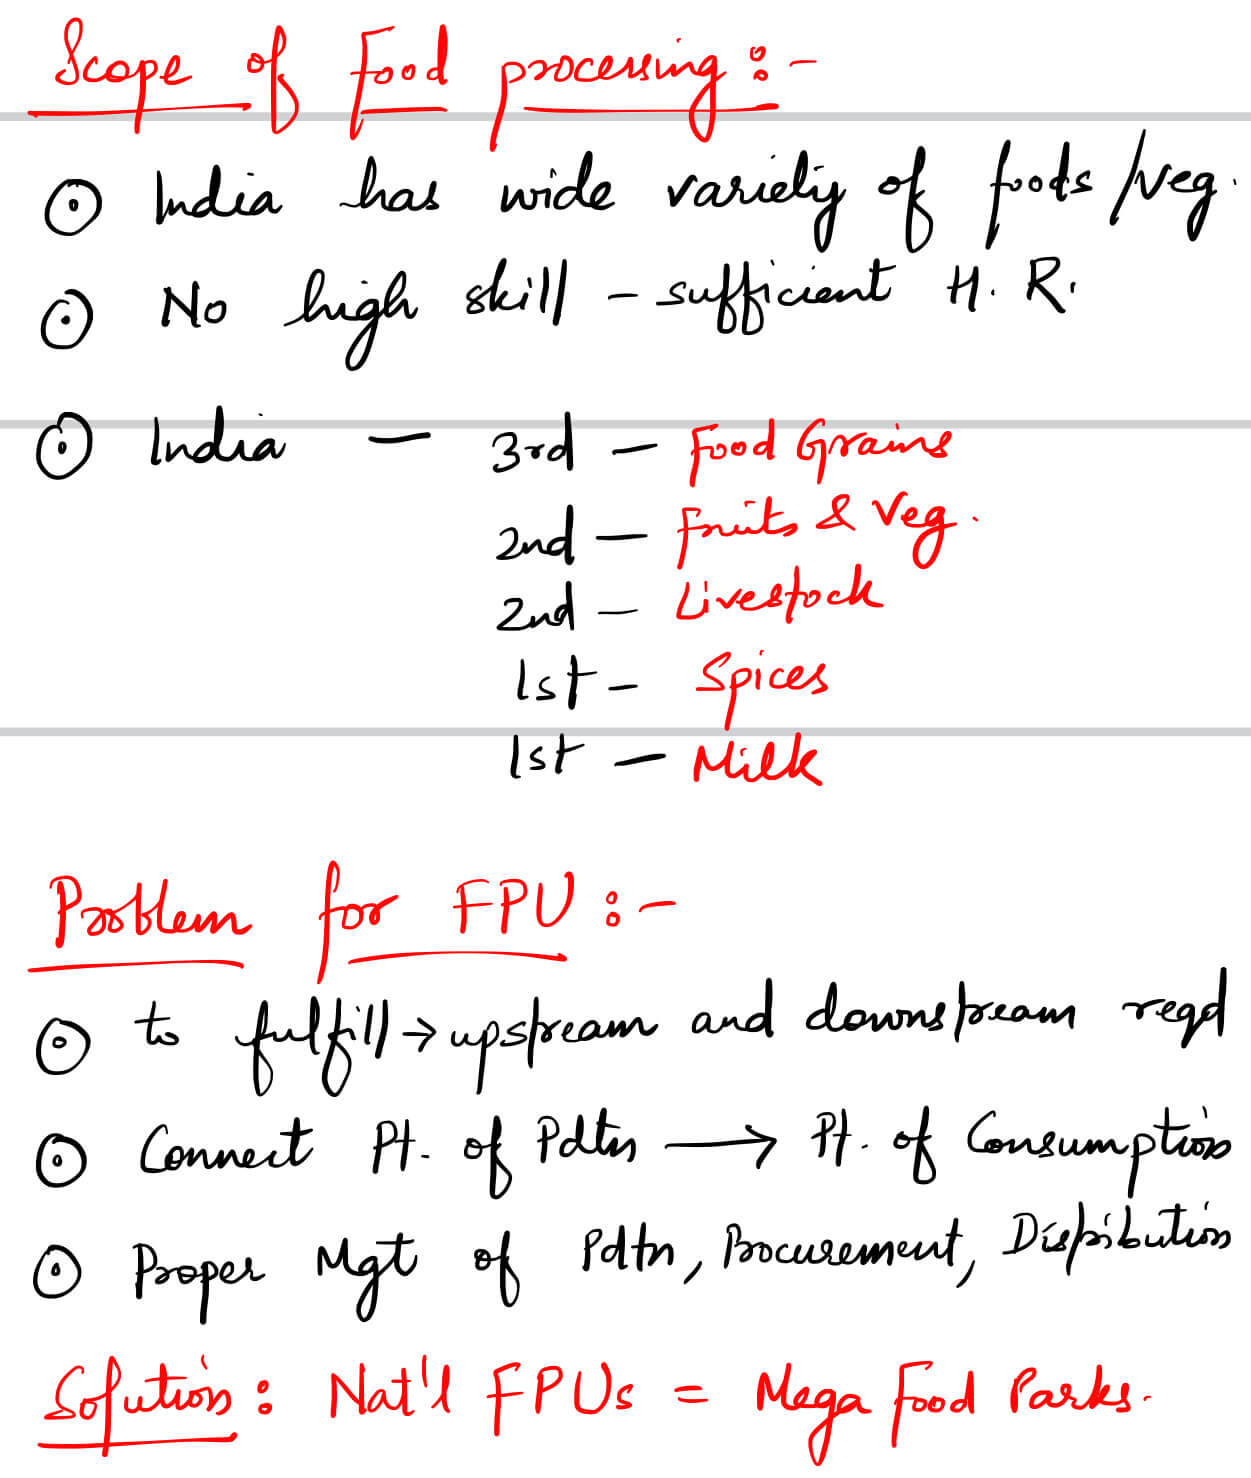 Scope of Food processing :-
⊙ India has wide variety of foods/veg.
⊙ No high skill - sufficient H.R.
⊙ India — 3rd — Food Grains
2nd — Fruits & Veg.
2nd — Livestock
1st - Spices
1st — Milk
Problem for FPU :-
⊙ to fulfill → upstream and downstream reqd
⊙ Connect Pt. of Pdtn → Pt. of Consumption
⊙ Proper Mgt of Pdtn, Procurement, Distribution
Solution : Nat'l FPUs = Mega Food Parks.